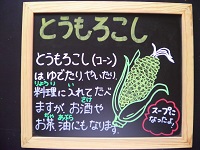 とうもろこし
とうもろこし(コーン)
は、ゆでたり、やいたり、
料理に入れてたべ
ますが、お酒や
お茶、油にもなります。
スープに
なったよ。